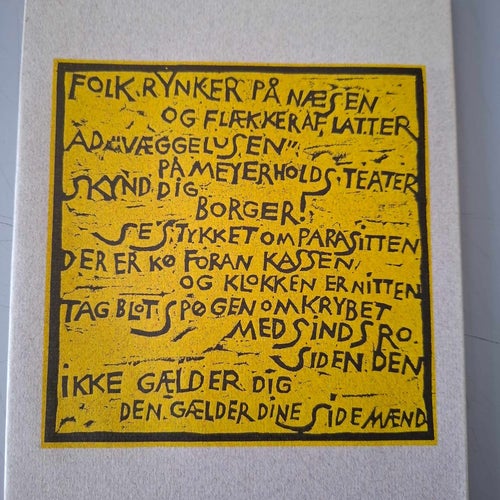 FOLK RYNKER PÅ NÆSEN
OG FLÆKKER AF LATTER
AD "VÆGGELUSEN"
PÅ MEYERHOLDS TEATER
SKYND DIG
BORGER!
SE STYKKET OM PARASITTEN
DER ER KØ FORAN KASSEN
OG KLOKKEN ER NITTEN
TAG BLOT SPØGEN OM KRYBET
MED SINDSRO
SIDEN DEN
IKKE GÆLDER DIG
DEN GÆLDER DINE SIDEMÆND